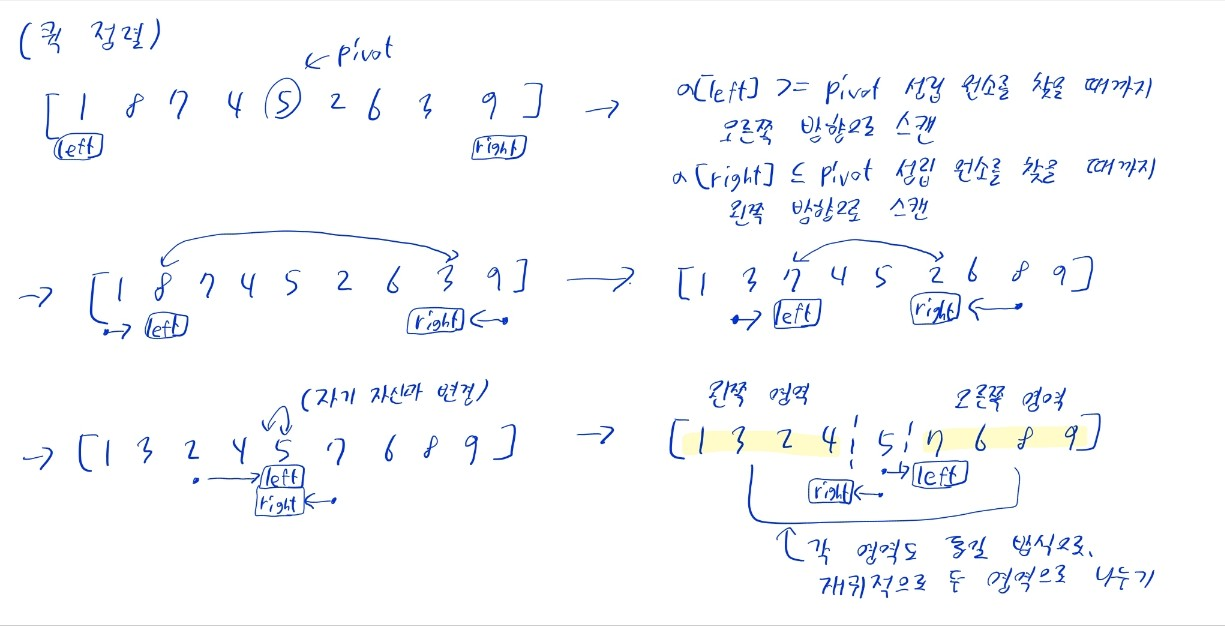 (퀵 정렬)
← pivot
[ 1 8 7 4 5 2 6 3 9 ] →
left right
a[left] >= pivot 성립 원소를 찾을 때까지
오른쪽 방향으로 스캔
a[right] ≤ pivot 성립 원소를 찾을 때까지
왼쪽 방향으로 스캔
→ [ 1 8 7 4 5 2 6 3 9 ] →
→ left right ←
[ 1 3 7 4 5 2 6 8 9 ]
→ left right ←
(자기 자신과 변경)
→ [ 1 3 2 4 5 7 6 8 9 ] →
→ left
right ←
왼쪽 영역 오른쪽 영역
[ 1 3 2 4 ¦ 5 ¦ 7 6 8 9 ]
→ left
right ←
각 영역도 동일 방식으로,
재귀적으로 두 영역으로 나누기